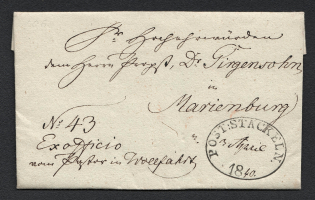 Sr Hochehrwürden
dem Herrn Propst, Dr Girgensohn,
in
Marienburg
No 43
Ex officio
vom Pastor in Wolfahrt,
POST: STACKELN.
1840.